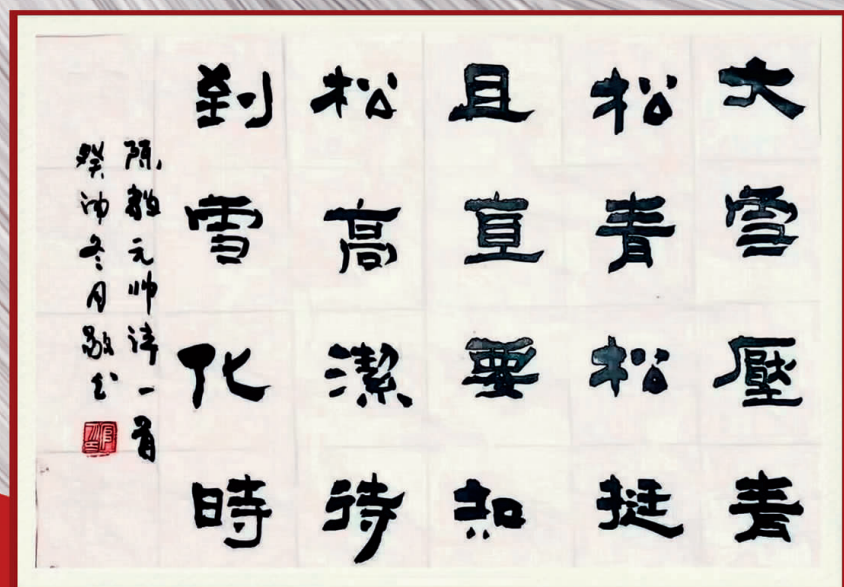 大雪壓青
松青松挺
且直要知
松高潔待
到雪化時
陈毅元帅诗一首
癸卯冬月敬书